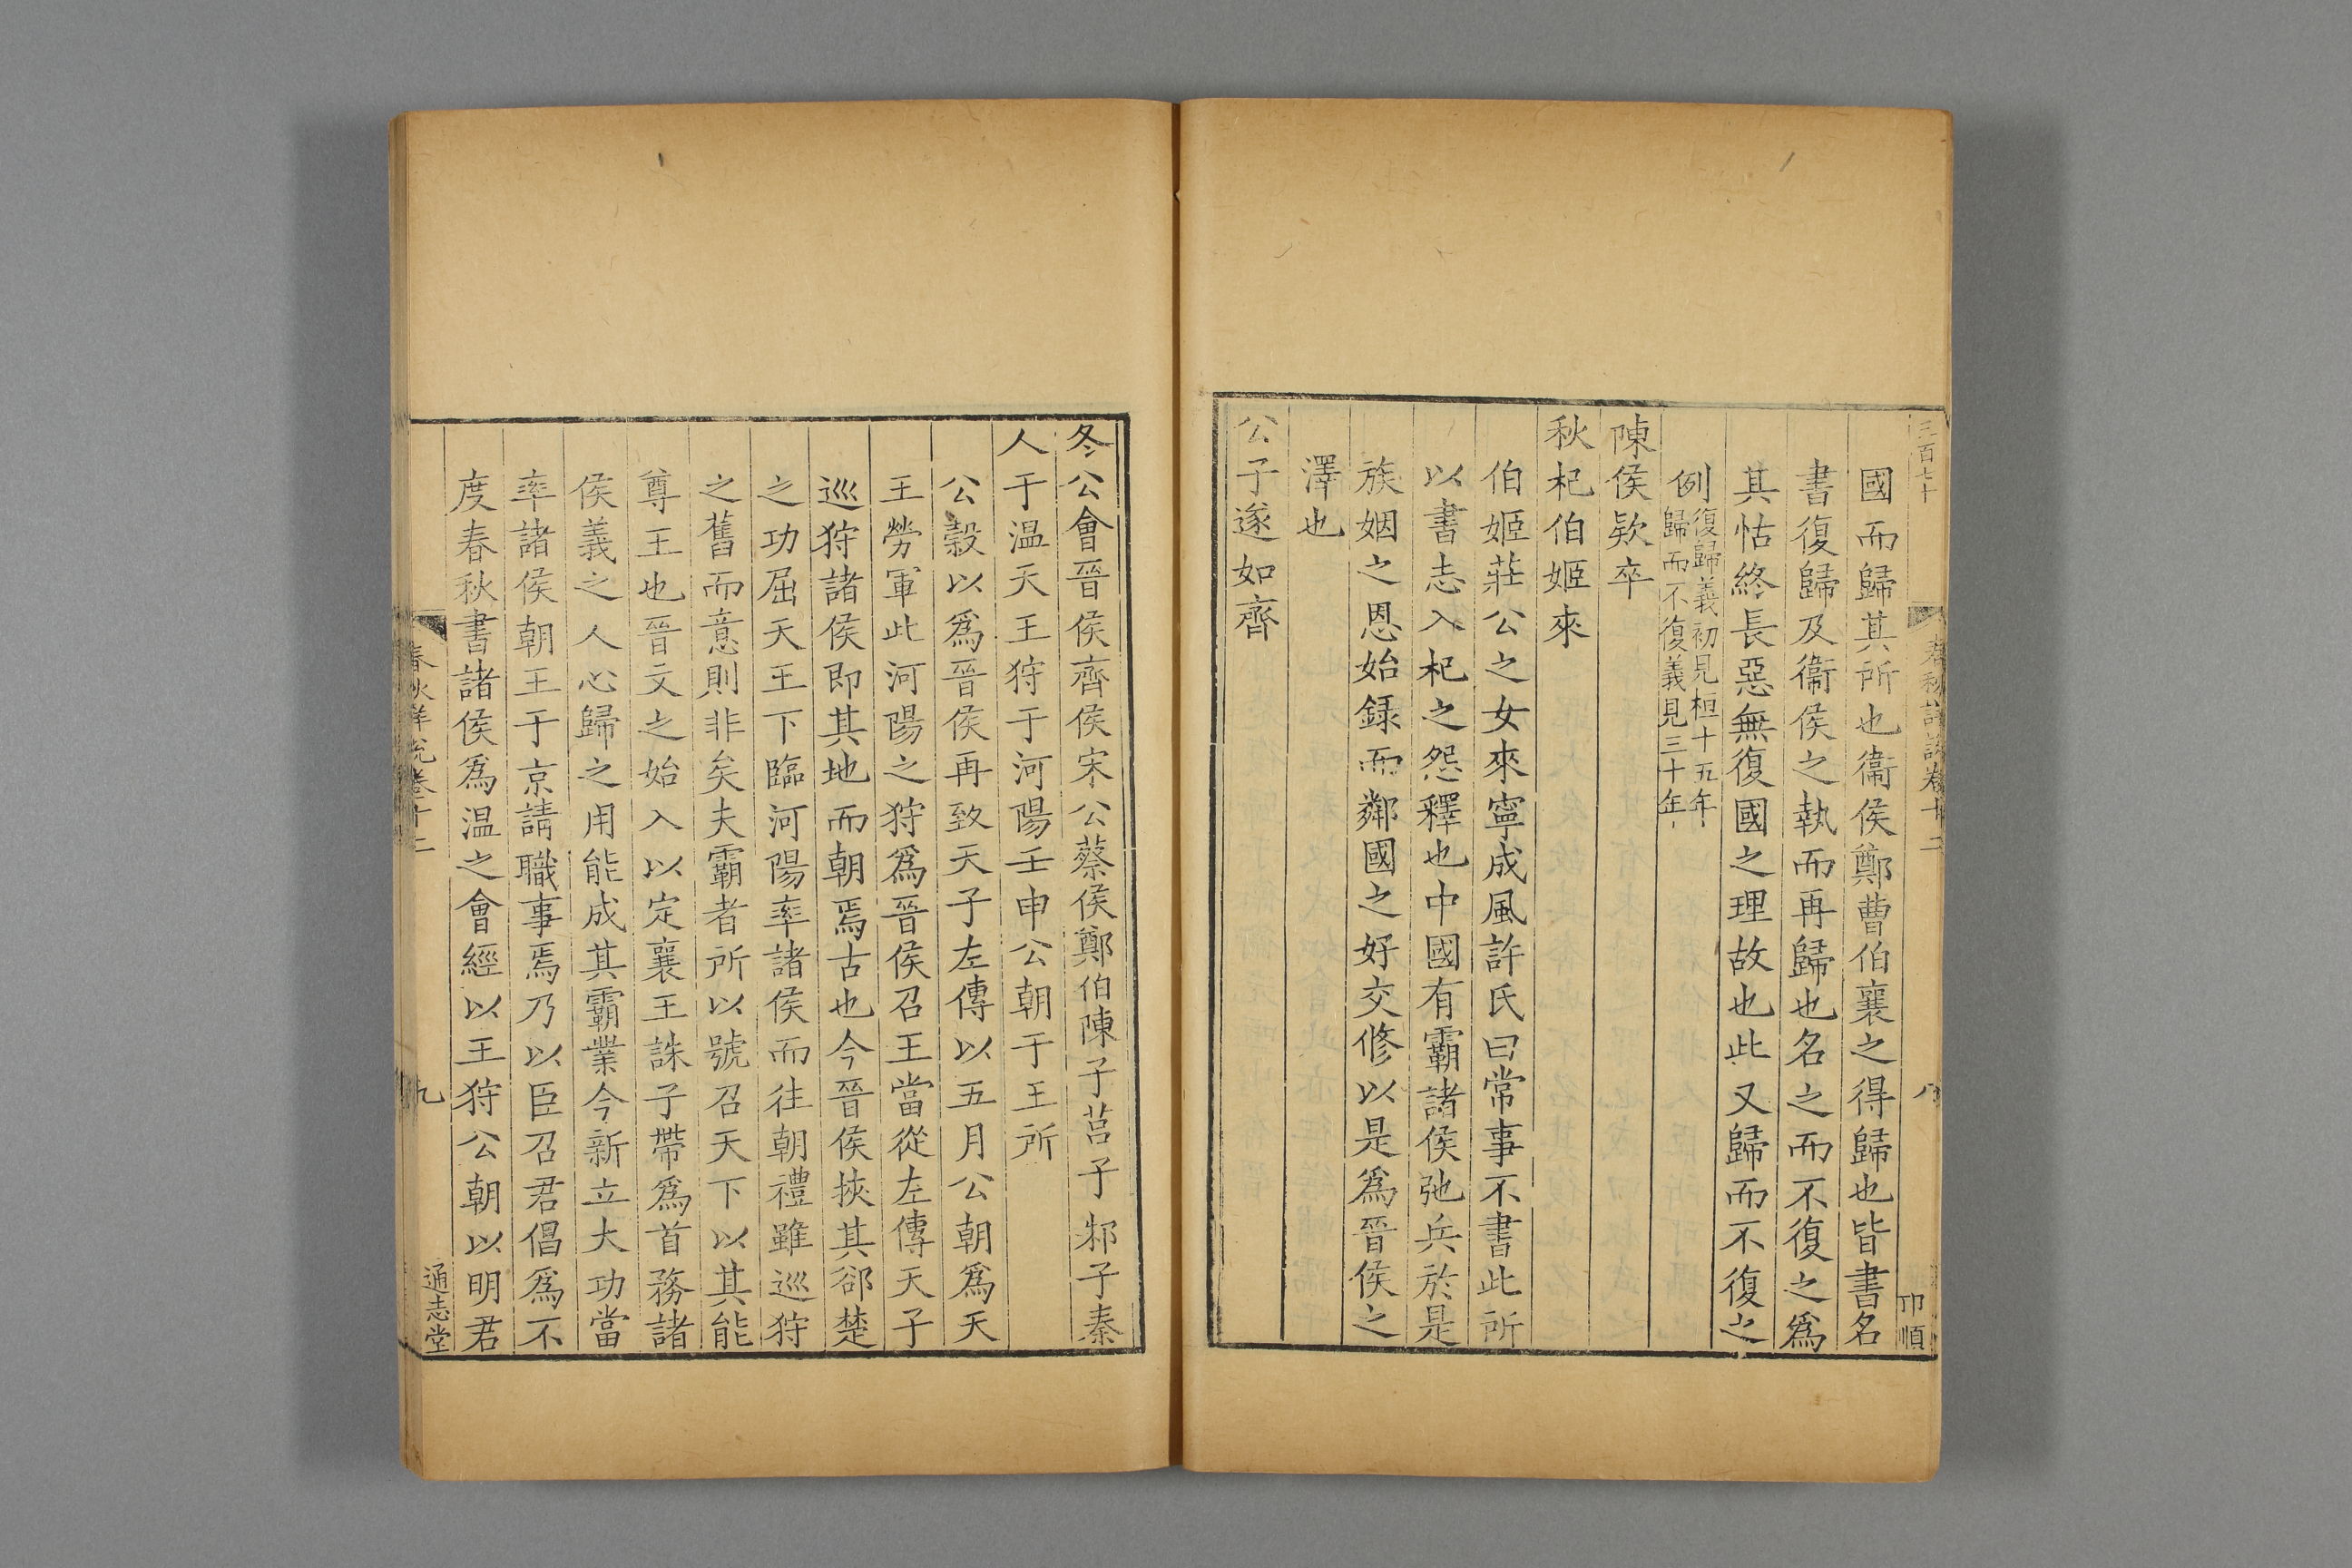 三百七十
春秋詳說卷十二
八
卭順
國而歸其所也衞侯鄭曹伯襄之得歸也皆書名
書復歸及衞侯之執而再歸也名之而不復之爲
其怙終長惡無復國之理故也此又歸而不復之
例復歸義初見桓十五年
歸而不復義見三十年
陳侯欵卒
秋杞伯姬來
伯姬莊公之女來寧成風許氏曰常事不書此所
以書志入杞之怨釋也中國有霸諸侯弛兵於是
族姻之恩始録而鄰國之好交修以是爲晉侯之
澤也
公子遂如齊
冬公會晉侯齊侯宋公蔡侯鄭伯陳子莒子邾子秦
人于温天王狩于河陽壬申公朝于王所
公穀以爲晉侯再致天子左傳以五月公朝爲天
王勞軍此河陽之狩爲晉侯召王當從左傳天子
巡狩諸侯即其地而朝焉古也今晉侯挾其郤楚
之功屈天王下臨河陽率諸侯而往朝禮雖巡狩
之舊而意則非矣夫霸者所以號召天下以其能
尊王也晉文之始入以定襄王誅子帶爲首務諸
侯義之人心歸之用能成其霸業今新立大功當
率諸侯朝王于京請職事焉乃以臣召君倡爲不
度春秋書諸侯爲温之會經以王狩公朝以明君
春秋詳說卷十二
九
通志堂